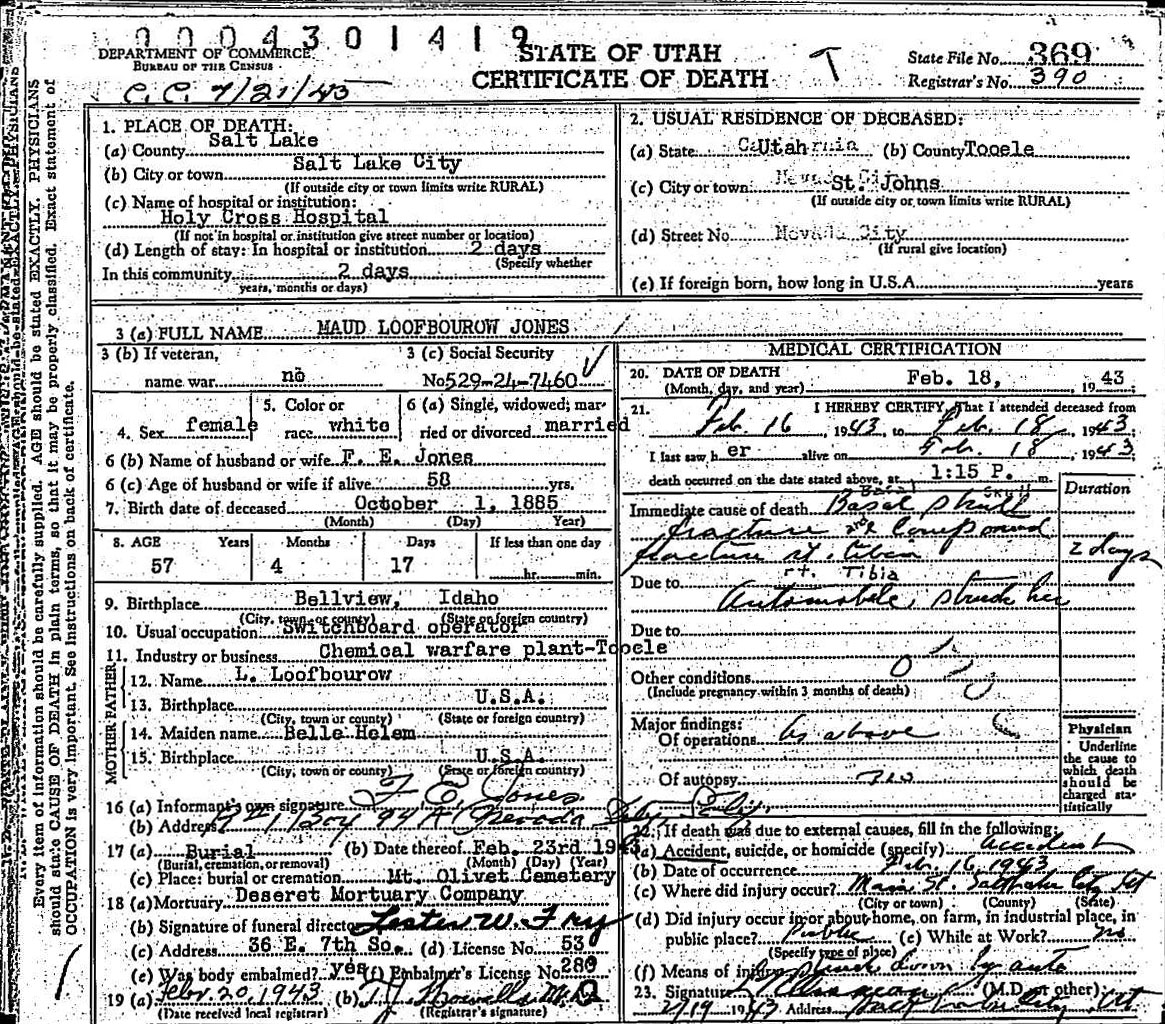 0004301419
DEPARTMENT OF COMMERCE
BUREAU OF THE CENSUS
C. C. 7/21/43
STATE OF UTAH
CERTIFICATE OF DEATH
T
State File No. 369
Registrar's No. 390
Every item of information should be carefully supplied. AGE should be stated EXACTLY. PHYSICIANS
should state CAUSE OF DEATH in plain terms, so that it may be properly classified. Exact statement of
OCCUPATION is very important. See instructions on back of certificate.
1. PLACE OF DEATH:
(a) County Salt Lake
(b) City or town Salt Lake City
(If outside city or town limits write RURAL)
(c) Name of hospital or institution:
Holy Cross Hospital
(If not in hospital or institution give street number or location)
(d) Length of stay: In hospital or institution 2 days
(Specify whether
In this community 2 days
years, months or days)
2. USUAL RESIDENCE OF DECEASED:
(a) State Utah (b) County Tooele
(c) City or town St. Johns
(If outside city or town limits write RURAL)
(d) Street No. Nevada City
(If rural give location)
(e) If foreign born, how long in U.S.A. years
3 (a) FULL NAME MAUD LOOFBOUROW JONES
3 (b) If veteran, name war no
3 (c) Social Security No. 529-24-7460
4. Sex female
5. Color or race white
6 (a) Single, widowed, married or divorced married
6 (b) Name of husband or wife F. E. Jones
6 (c) Age of husband or wife if alive 58 yrs.
7. Birth date of deceased October 1, 1885
(Month) (Day) Year)
8. AGE Years Months Days If less than one day
57 4 17 hr. min.
9. Birthplace Bellview, Idaho
(City, town or county) (State or foreign country)
10. Usual occupation Switchboard operator
11. Industry or business Chemical warfare plant-Tooele
FATHER
12. Name L. Loofbourow
13. Birthplace U.S.A.
(City, town or county) (State or foreign country)
MOTHER
14. Maiden name Belle Helem
15. Birthplace U.S.A.
(City, town or county) (State or foreign country)
16 (a) Informant's own signature F E Jones
(b) Address Rt 1 Box 94 A Nevada City, Calif.
17 (a) Burial (b) Date thereof Feb. 23rd 1943
(Burial, cremation, or removal) (Month) (Day) (Year)
(c) Place: burial or cremation Mt. Olivet Cemetery
18 (a) Mortuary Deseret Mortuary Company
(b) Signature of funeral director Lester W. Fry
(c) Address 36 E. 7th So. (d) License No. 53
(e) Was body embalmed? yes (f) Embalmer's License No. 280
19 (a) Febr. 20, 1943 (b)
(Date received local registrar) (Registrar's signature)
MEDICAL CERTIFICATION
20. DATE OF DEATH
(Month, day, and year) Feb. 18, 1943
21. I HEREBY CERTIFY, That I attended deceased from
Feb. 16, 1943, to Feb. 18, 1943
I last saw her alive on Feb. 18 1943
death occurred on the date stated above, at 1:15 P. m.
Duration
Basal Skull
Immediate cause of death Basal skull
fracture and compound
fracture rt. tibia 2 days
rt. Tibia
Due to Automobile, struck her
Due to
Other conditions
(Include pregnancy within 3 months of death)
Major findings:
Of operations as above
Of autopsy no
Physician
Underline
the cause to
which death
should be
charged statistically
22. If death was due to external causes, fill in the following:
(a) Accident, suicide, or homicide (specify) accident
(b) Date of occurrence Feb. 16, 1943
(c) Where did injury occur? Main St. Salt Lake City Ut
(City or town) (County) (State)
(d) Did injury occur in or about home, on farm, in industrial place, in
public place? Public (e) While at Work? no
(Specify type of place)
(f) Means of injury struck down by auto
23. Signature (M.D. or other)
2/19 1943 Address Salt Lake City, Ut